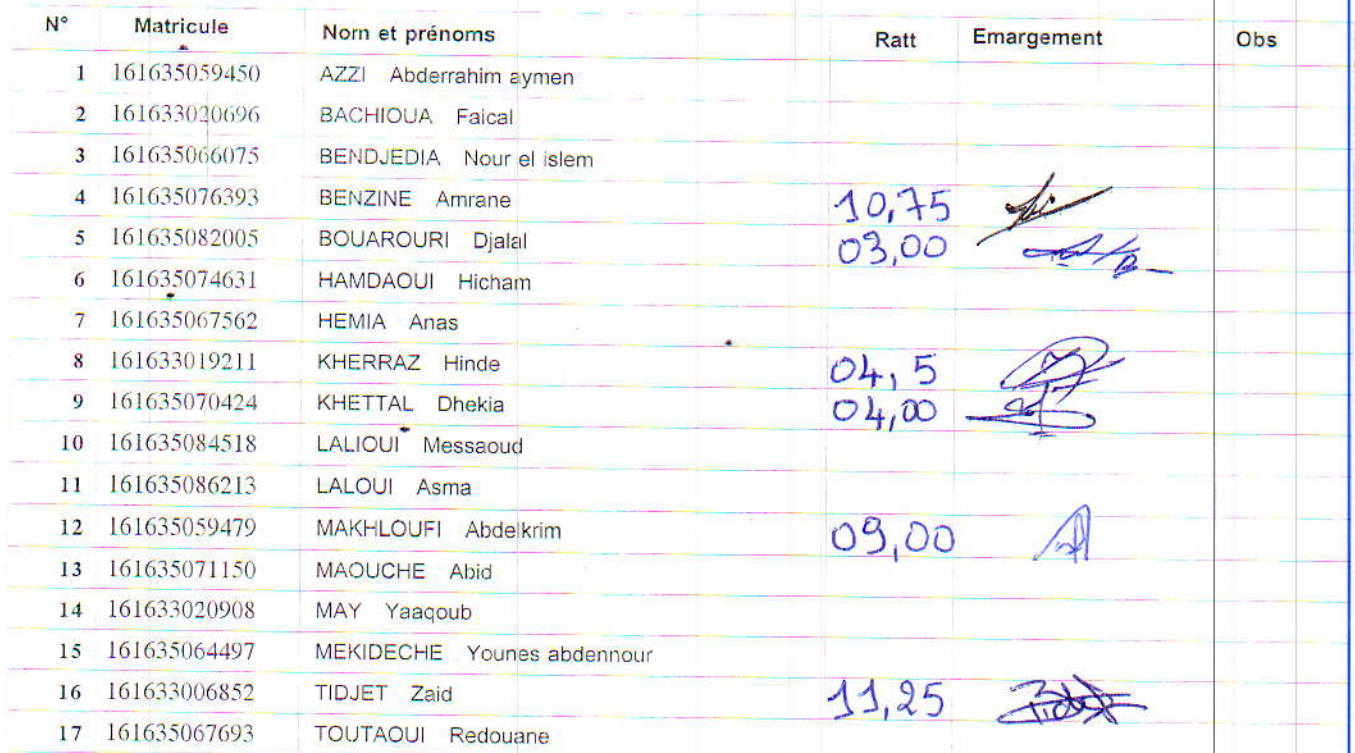 N° Matricule Nom et prénoms Ratt Emargement Obs
1 161635059450 AZZI Abderrahim aymen
2 161633020696 BACHIOUA Faical
3 161635066075 BENDJEDIA Nour el islem
4 161635076393 BENZINE Amrane 10,75
5 161635082005 BOUAROURI Djalal 03,00
6 161635074631 HAMDAOUI Hicham
7 161635067562 HEMIA Anas
8 161633019211 KHERRAZ Hinde 04,5
9 161635070424 KHETTAL Dhekia 04,00
10 161635084518 LALIOUI Messaoud
11 161635086213 LALOUI Asma
12 161635059479 MAKHLOUFI Abdelkrim 09,00
13 161635071150 MAOUCHE Abid
14 161633020908 MAY Yaaqoub
15 161635064497 MEKIDECHE Younes abdennour
16 161633006852 TIDJET Zaid 11,25
17 161635067693 TOUTAOUI Redouane